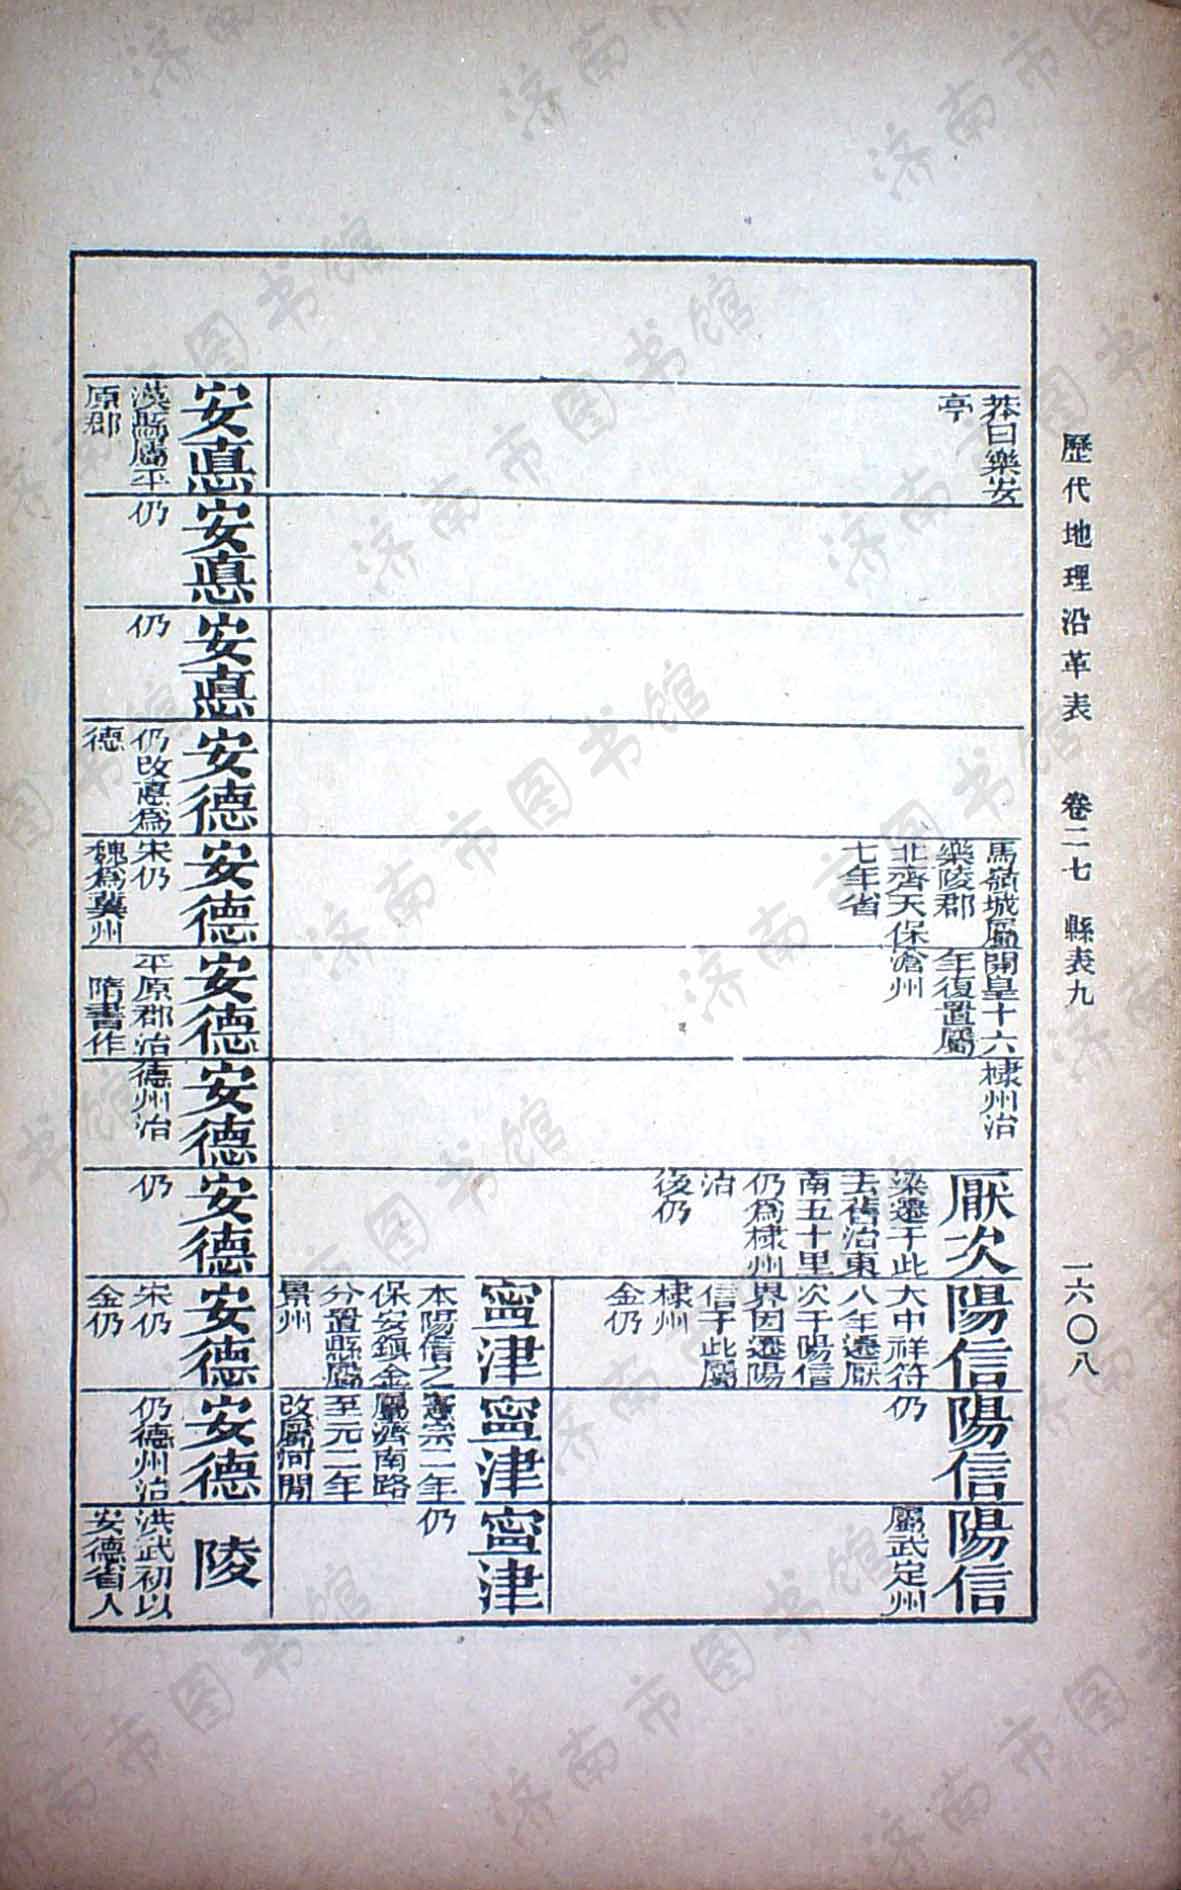 歷代地理沿革表　卷二七　縣表九　一六〇八
莽曰樂安
亭
馬嶺城屬
樂陵郡
北齊天保
七年省
開皇十六
年復置屬
滄州
棣州治
厭次
梁遷于此
去舊治東
南五十里
仍爲棣州
治
後仍
陽信
大中祥符
八年遷厭
次于陽信
界因遷陽
信于此屬
棣州
金仍
陽信
仍
陽信
屬武定州
寧津
本陽信之
保安鎮金
分置縣屬
景州
寧津
憲宗二年
屬濟南路
至元二年
改屬河間
寧津
仍
安悳
漢縣屬平
原郡
安悳
仍
安悳
仍
安德
仍改悳爲
德
安德
宋仍
魏爲冀州
安德
平原郡治
隋書作
安德
德州治
安德
仍
安德
宋仍
金仍
安德
仍德州治
陵
洪武初以
安德省入
济南市图书馆